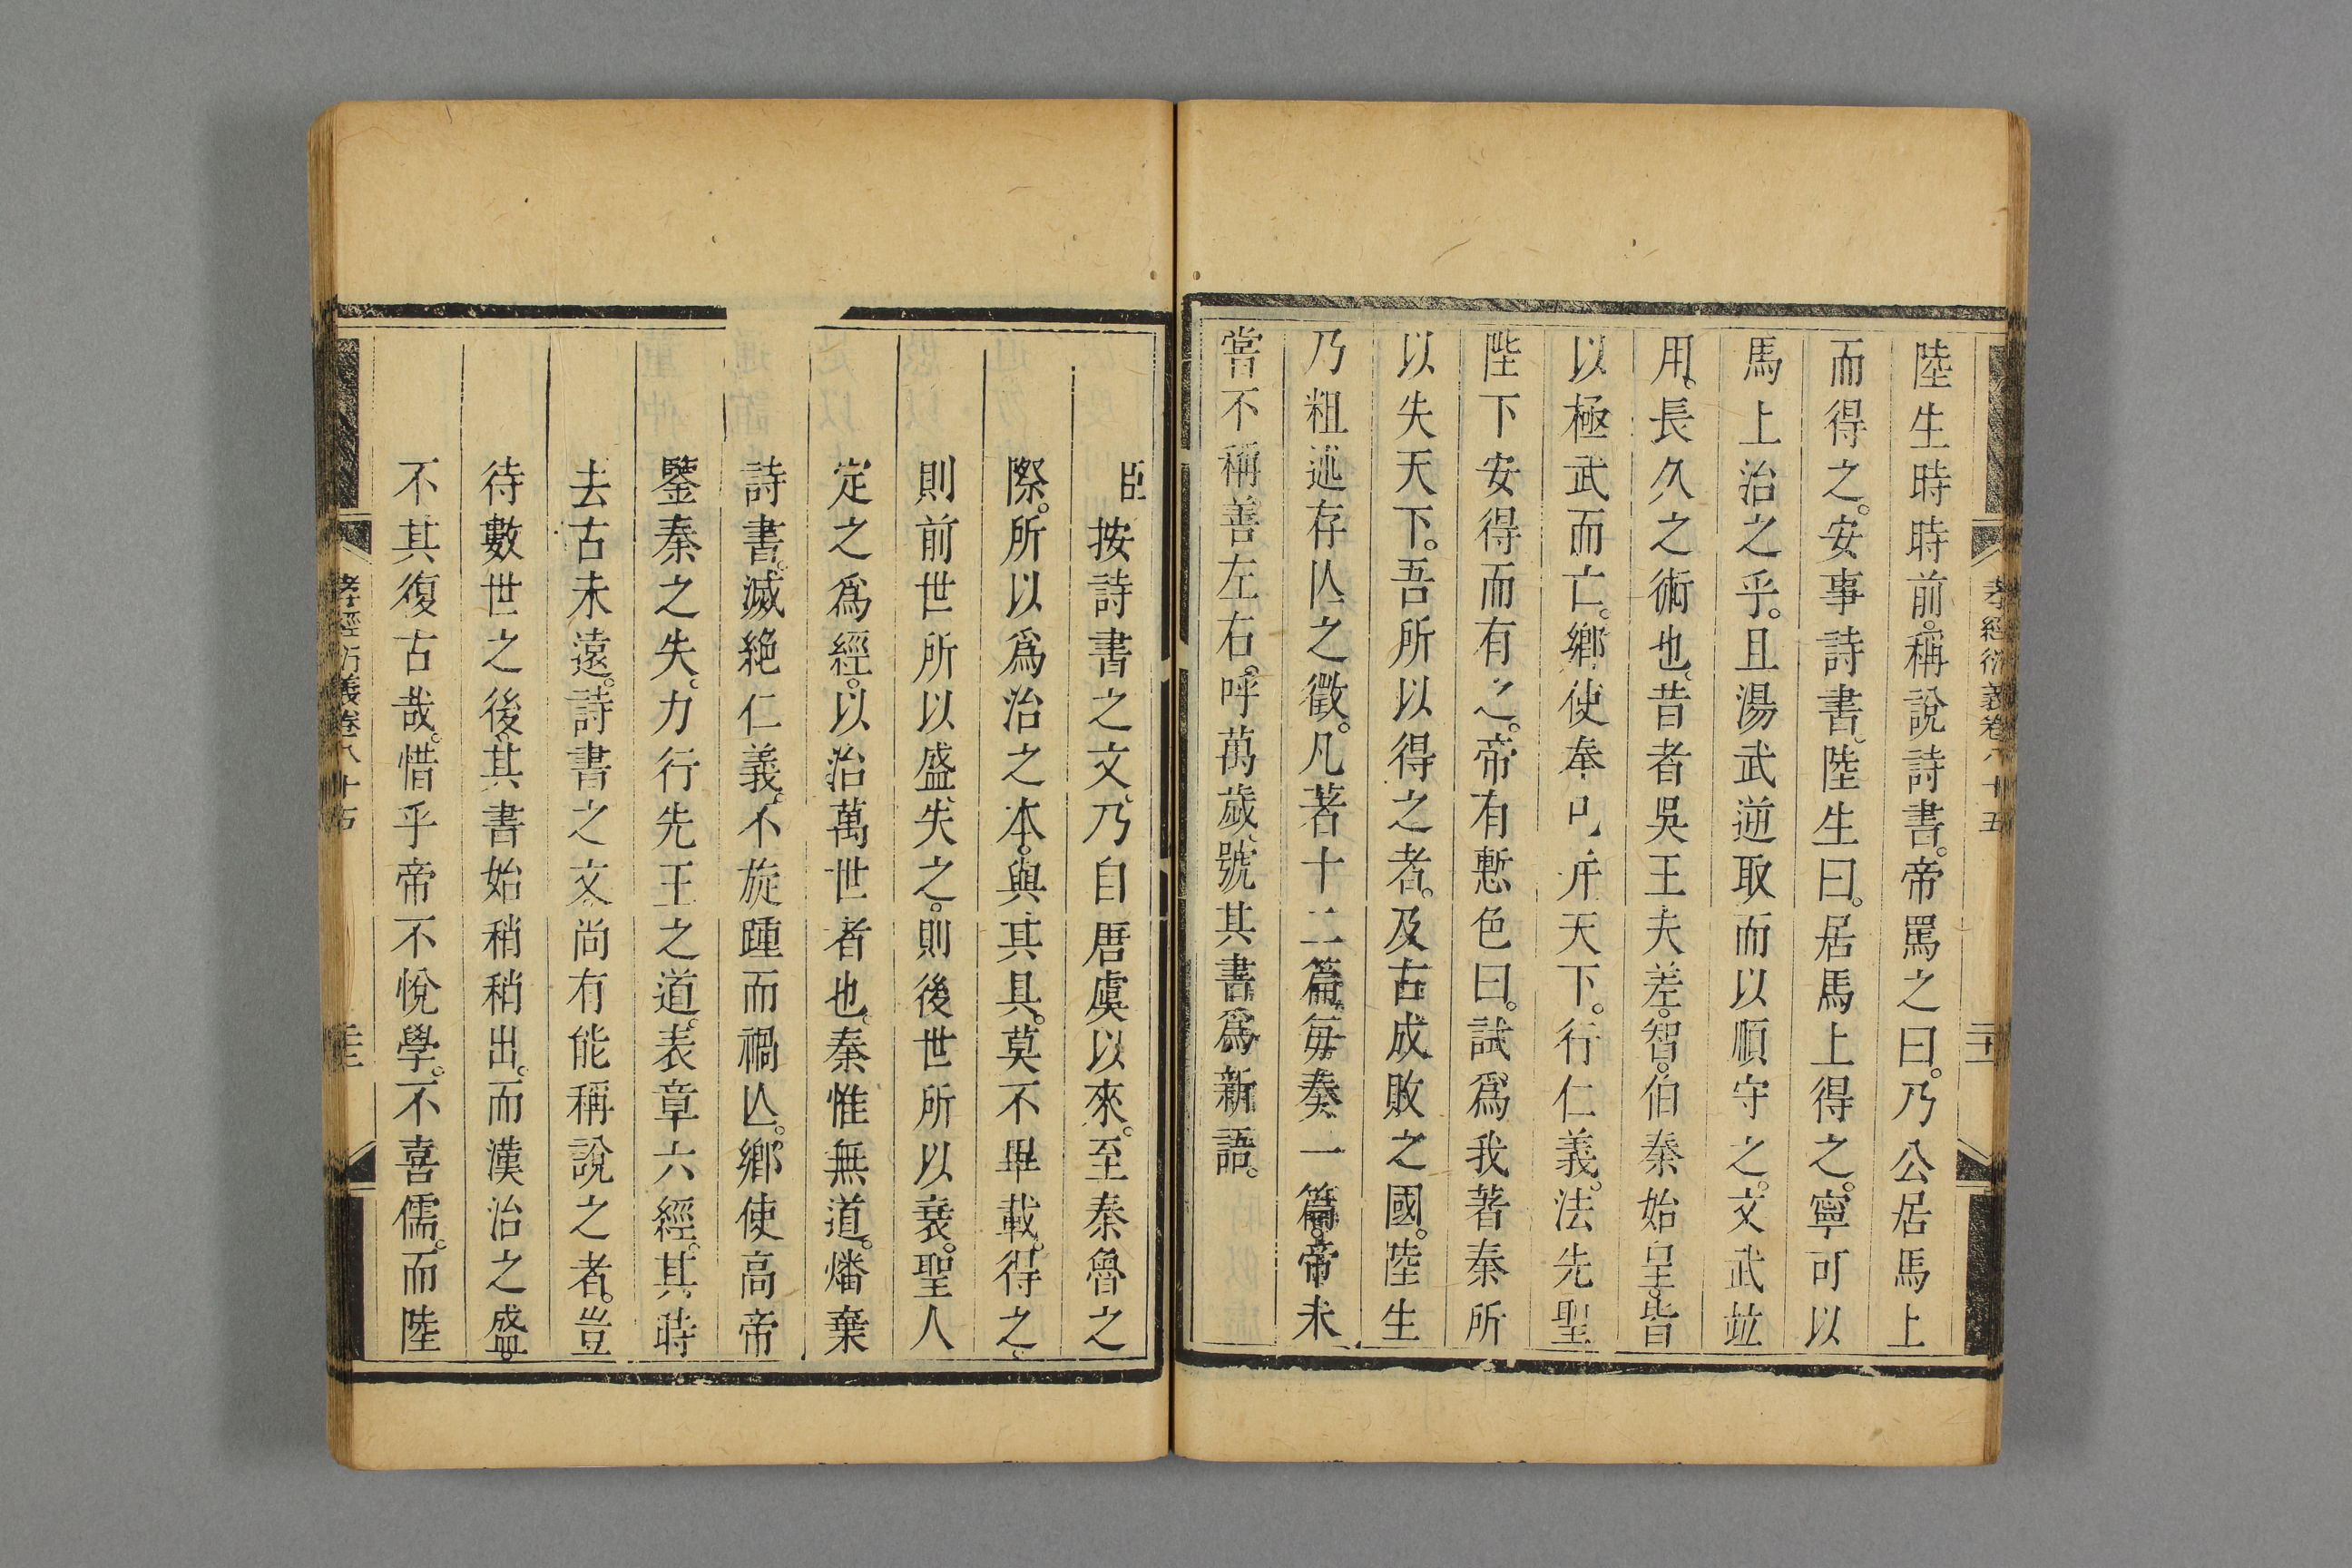 孝經衍義卷八十五
陸生時時前。稱說詩書。帝罵之曰。乃公居馬上
而得之。安事詩書。陸生曰。居馬上得之。寧可以
馬上治之乎。且湯武逆取而以順守之。文武並
用。長久之術也。昔者吳王夫差。智。伯秦始皇。皆
以極武而亡。鄉使秦已并天下。行仁義。法先聖
陛下安得而有之。帝有慙色曰。試爲我著秦所
以失天下。吾所以得之者。及古成敗之國。陸生
乃粗述存亾之徵。凡著十二篇。每奏一篇。帝未
嘗不稱善左右。呼萬歲。號其書爲新語。
臣按詩書之文。乃自唐虞以來。至秦魯之
際。所以爲治之本。與其具。莫不畢載。得之。
則前世所以盛失之。則後世所以衰。聖人
定之爲經。以治萬世者也。秦惟無道。燔棄
詩書。滅絶仁義。不旋踵而禍亾。鄉使高帝
鑒秦之失。力行先王之道。表章六經。其時
去古未遠。詩書之文。尚有能稱說之者。豈
待數世之後。其書始稍稍出。而漢治之盛。
不其復古哉。惜乎帝不悅學。不喜儒。而陸
孝經衍義卷八十五